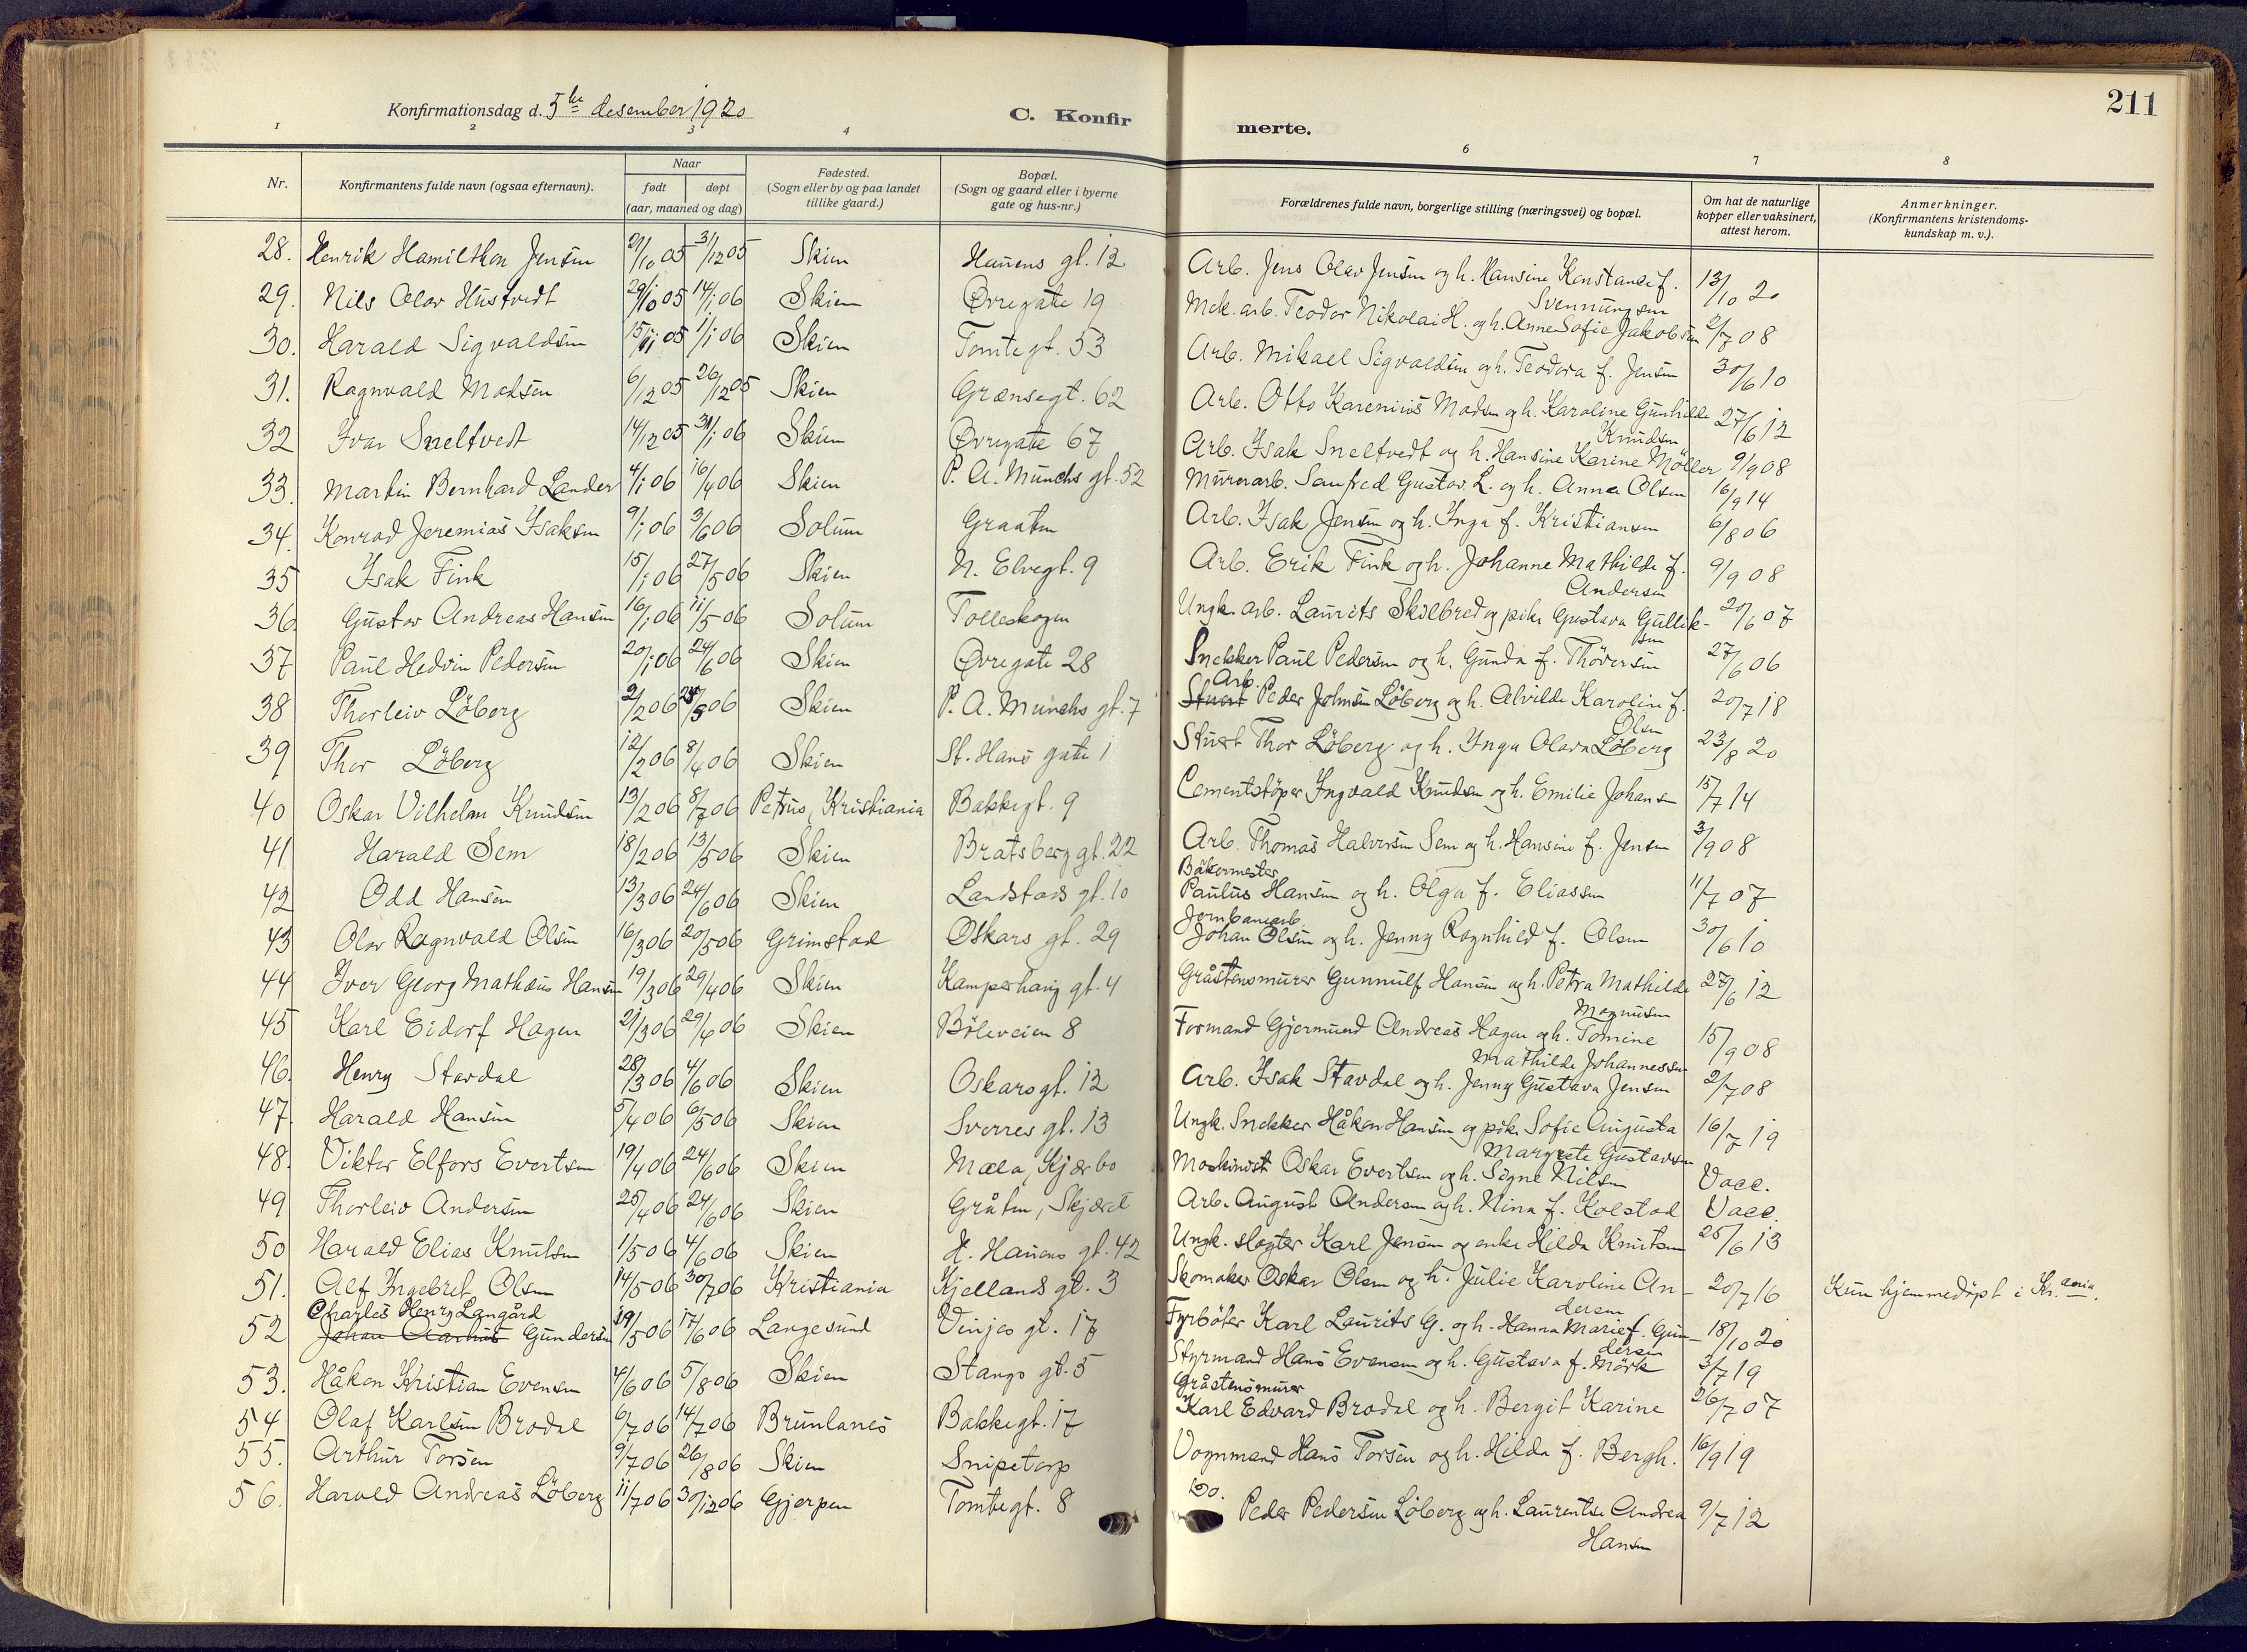 Konfirmationsdag d. 5te desember 1920
C. Konfir
merte.
211
1 2 3 4 6 7 8
Nr. Konfirmantens fulde navn (ogsaa efternavn). Naar født døpt (aar, maaned og dag) Fødested. (Sogn eller by og paa landet tillike gaard.) Bopæl. (Sogn og gaard eller i byerne gate og hus-nr.) Forældrenes fulde navn, borgerlige stilling (næringsvei) og bopæl. Om hat de naturlige kopper eller vaksinert, attest herom. Anmerkninger. (Konfirmantens kristendoms-kundskap m. v.).
28. Henrik Hamilthon Jensen 21/10 05 31/12 05 Skien Hauens gt. 12 Arb. Jens Olav Jensen og h. Hansine Konstance f. Svennungsen 13/10 20
29. Nils Olav Hustvedt 29/10 05 14/1 06 Skien Øvregate 19 Mek. arb. Teodor Nikolai H. og h. Anne Sofie Jakobsen 2/7 08
30. Harald Sigvaldsen 15/11 05 1/1 06 Skien Tomtegt. 53 Arb. Mikael Sigvaldsen og h. Teodora f. Jensen 30/6 10
31. Ragnvald Madsen 6/12 05 26/12 05 Skien Grænsegt. 62 Arb. Otto Karenius Madsen og h. Karoline Gunhilde Knudsen 27/6 12
32 Ivar Sneltvedt 14/12 05 31/1 06 Skien Øvregate 67 Arb. Isak Sneltvedt og h. Hansine Karine Möller 9/9 08
33. Martin Bernhard Lander 4/1 06 16/4 06 Skien P. A. Munchs gt. 52 Murerarb. Sanfred Gustav L. og h. Anna Olsen 16/9 14
34. Konrad Jeremias Isaksen 9/1 06 3/6 06 Solum Graaten Arb. Isak Jensen og h. Inga f. Kristiansen 6/8 06
35 Isak Fink 15/1 06 27/5 06 Skien N. Elvegt. 9 Arb. Erik Fink og h. Johanne Mathilde f. Andersen 9/9 08
36. Gustav Andreas Hansen 16/1 06 11/5 06 Solum Tolleskogen Ungk. arb. Laurits Skilbred og pike Gustava Gulliksen 20/6 07
37 Paul Hedvin Pedersen 20/1 06 24/6 06 Skien Øvregate 28 Snekker Paul Pedersen og h. Gunda f. Thöversen 27/6 06
38 Thorleiv Löberg 2/2 06 /5 06 Skien P. A. Munchs gt. 7 Stuert Arb. Peder Johnsen Löberg og h. Alvilde Karoline f. Olsen 20/7 18
39 Thor Löberg 12/2 06 8/4 06 Skien St. Hans gate 1 Stuert Thor Löberg og h. Inga Olava Löberg 23/8 20
40 Oskar Vilhelm Knudsen 13/2 06 8/7 06 Petrus, Kristiania Bakkegt. 9 Cementstöper Ingvald Knudsen og h. Emilie Johansen 15/7 14
41 Harald Sem 18/2 06 13/5 06 Skien Bratsberg gt. 22 Arb. Thomas Halvorsen Sem og h. Hansine f. Jensen 3/9 08
42 Odd Hansen 13/3 06 24/6 06 Skien Landstads gt. 10 Bakermester Paulus Hansen og h. Olga f. Eliassen 11/7 07
43 Olav Ragnvald Olsen 16/3 06 20/5 06 Grimstad Oskars gt. 29 Jernbanearb. Johan Olsen og h. Jenny Ragnhild f. Olsen 30/6 10
44 Iver Georg Mathæus Hansen 19/3 06 29/4 06 Skien Kamperhaug gt. 4 Gråstensmurer Gunnulf Hansen og h. Petra Mathilde Magnusen 27/6 12
45 Karl Eidorf Hagen 21/3 06 29/4 06 Skien Böleveien 8 Formand Gjermund Andreas Hagen og h. Tomine Mathilde Johannessen 15/9 08
46. Henry Stavdal 28/3 06 4/6 06 Skien Oskars gt. 12 Arb. Isak Stavdal og h. Jenny Gustava Jensen 2/7 08
47. Harald Hansen 5/4 06 6/5 06 Skien Sverres gt. 13 Ungk. Snekker Håkon Hansen og pike Sofie Augusta Margrete Gustavsen 16/7 19
48. Viktor Elfors Evertsen 19/4 06 24/6 06 Skien Mæla, Kjærbo Maskinist Oskar Evertsen og h. Signe Nilsen Vacc.
49 Thorleiv Andersen 25/4 06 24/6 06 Skien Gråten, Skjæret Arb. August Andersen og h. Nina f. Kolstad Vacc.
50 Harald Elias Knutsen 1/5 06 4/6 06 Skien H. Hauens gt. 42 Ungk. slagter Karl Jensen og enke Hilda Knutsen 25/6 13
51. Alf Ingebret Olsen 14/5 06 30/7 06 Kristiania Kjellands gt. 3 Skomaker Oskar Olsen og h. Julie Karoline Andersen 20/7 16 Kun hjemmedöpt i Kr.ania.
52 Charles Henry Langård Johan Gundersen 19/5 06 17/6 06 Langesund Vinjes gt. 17 Fyrböter Karl Laurits G. og h. Hanna Marie f. Gundersen 18/10 20
53. Håkon Kristian Evensen 4/6 06 5/8 06 Skien Stangs gt. 5 Styrmand Hans Evensen og h. Gustava f. Mörk 3/7 19
54 Olaf Karlsen Brodal 6/7 06 14/7 06 Brunlanes Bakkegt. 17 Gråstensmurer Karl Edvard Brodal og h. Bergit Karine 26/7 07
55. Arthur Torsen 9/7 06 26/8 06 Skien Snipetorp Vognmand Hans Torsen og h. Hilda f. Bergh. 16/9 19
56. Harald Andreas Löberg 11/7 06 30/12 06 Gjerpen Tomtegt. 8 Do. Peder Pedersen Löberg og h. Laurentse Andrea Hansen 9/7 12